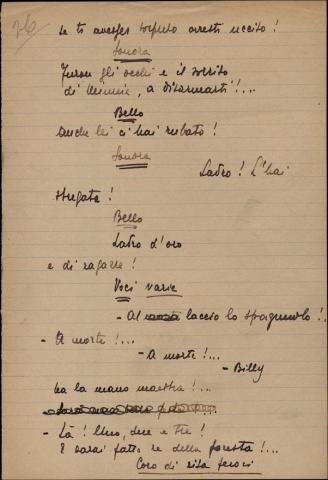 36
se ti avesser saputo avresti ucciso!
Sonora
Furon gli occhi e il sorriso
di Minnie, a disarmarti!...
Bello
Anche lei ci hai rubato!
Sonora
Ladro! L'hai
stregata!
Bello
Ladro d'oro
e di ragazze!
Voci varie
- Al laccio lo spagnuolo!
- A morte!...
- A morte!...
- Billy
ha la mano maestra!...
- Là! Uno, due e tre!
E sarai fatto re della foresta!...
Coro di risa feroci